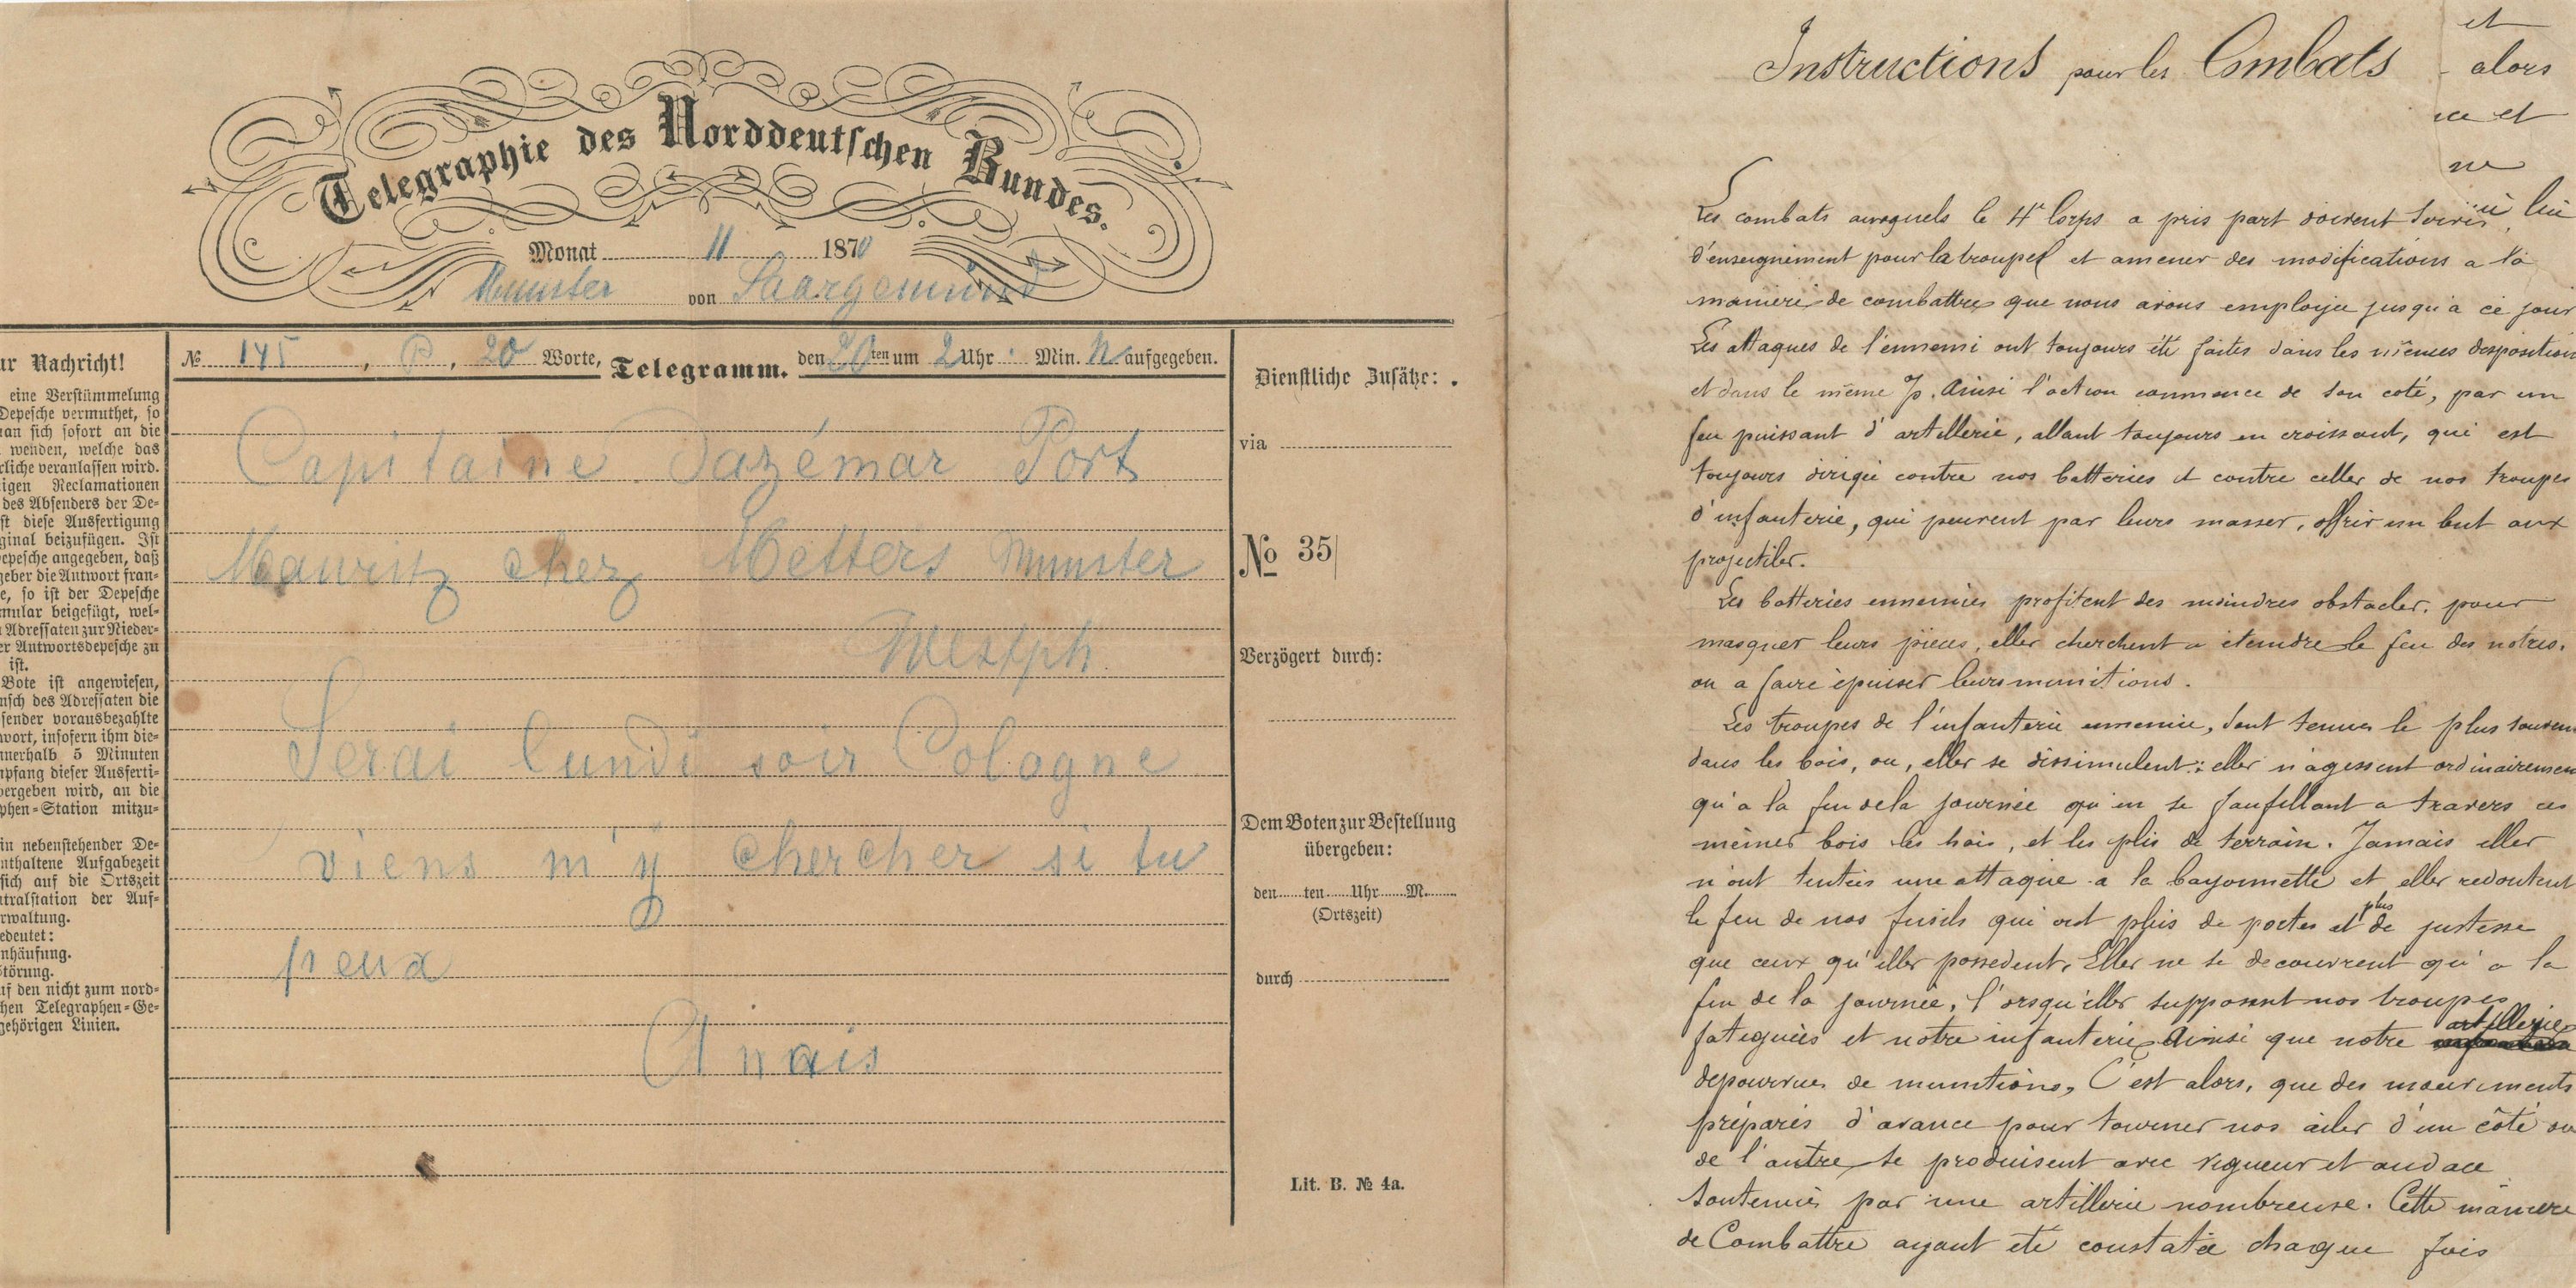 Telegraphie des Norddeutschen Bundes.
Monat 11 1870
Munster von Saargemünd
№ 145, P, 20 Worte, Telegramm. den 20ten um 2 Uhr Min. N aufgegeben.
ur Nachricht!
eine Verstümmelung
Depesche vermuthet, so
an sich sofort an die
wenden, welche das
rliche veranlassen wird.
igen Reclamationen
des Absenders der De-
st diese Ausfertigung
ginal beizufügen. Ist
epesche angegeben, daß
geber die Antwort fran-
e, so ist der Depesche
mular beigefügt, wel-
Adressaten zur Nieder-
er Antwortsdepesche zu
ist.
Bote ist angewiesen,
nsch des Adressaten die
sender vorausbezahlte
wort, insofern ihm die-
nnerhalb 5 Minuten
mpfang dieser Ausferti-
bergeben wird, an die
phen-Station mitzu-
in nebenstehender De-
nthaltene Aufgabezeit
sich auf die Ortszeit
tralstation der Auf-
rwaltung.
edeutet:
nhäufung.
törung.
uf den nicht zum nord-
hen Telegraphen-Ge-
gehörigen Linien.
Capitaine Dazémar Port
Mauritz chez Metters Munster
Westph.
Serai lundi soir Cologne
viens m'y chercher si tu
peux
Anais
Dienstliche Zusätze:
via
№ 35
Verzögert durch:
Dem Boten zur Bestellung
übergeben:
den ten Uhr M.
(Ortszeit)
durch
Lit. B. № 4a.
et
alors
ce et
ne
lui
Instructions pour les Combats
Les combats auxquels le 4e Corps a pris part doivent servir
d'enseignement pour la troupe et amener des modifications a la
maniere de combattre que nous avons employée jusqu'à ce jour
Les attaques de l'ennemi ont toujours été faites dans les mêmes desposition
et dans le même Ainsi l'action commence de son coté, par un
feu puissant d'artillerie, allant toujours en croissant, qui est
toujours dirigée contre nos batteries et contre celles de nos troupes
d'infanterie, qui peuvent par leurs masses, offrir un but aux
projectiles.
Les batteries ennemies profitent des moindres obstacles, pour
masquer leurs pièces, elles cherchent a eteindre le feu des notres,
ou a faire épuiser leurs munitions.
Les troupes de l'infanterie ennemie, sont tenues le plus souven
dans les bois, ou, elles se dissimulent; elles n'agessent ordinairemen
qu'a la fin de la journée qu'en se faufillant a travers ces
mêmes bois les hais, et les plis de terrain. Jamais elles
n'ont tentées une attaque a la bayonnette et elles redoutent
le feu de nos fusils qui ont plus de portes et plus de justesse
que ceux qu'elles possedent. Elles ne se decouvrent qu'a la
fin de la journée, l'orsqu'elles supposent nos troupes
fatiguées et notre infanterie ainsi que notre artillerie
depourvues de munitions, C'est alors, que des mouvements
préparés d'avance pour tourner nos ailes d'un côté ou
de l'autre se produisent avec vigueur et audace
soutenus par une artillerie nombreuse. Cette maniere
de Combattre ayant eté constatée chaque fois